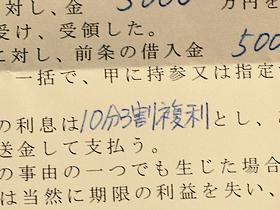 対し、金 5000 万円を
受け、受領した。
に対し、前条の借入金 500
一括で、甲に持参又は指定
の利息は10分3割複利とし、
送金して支払う。
の事由の一つでも生じた場合
は当然に期限の利益を失い、